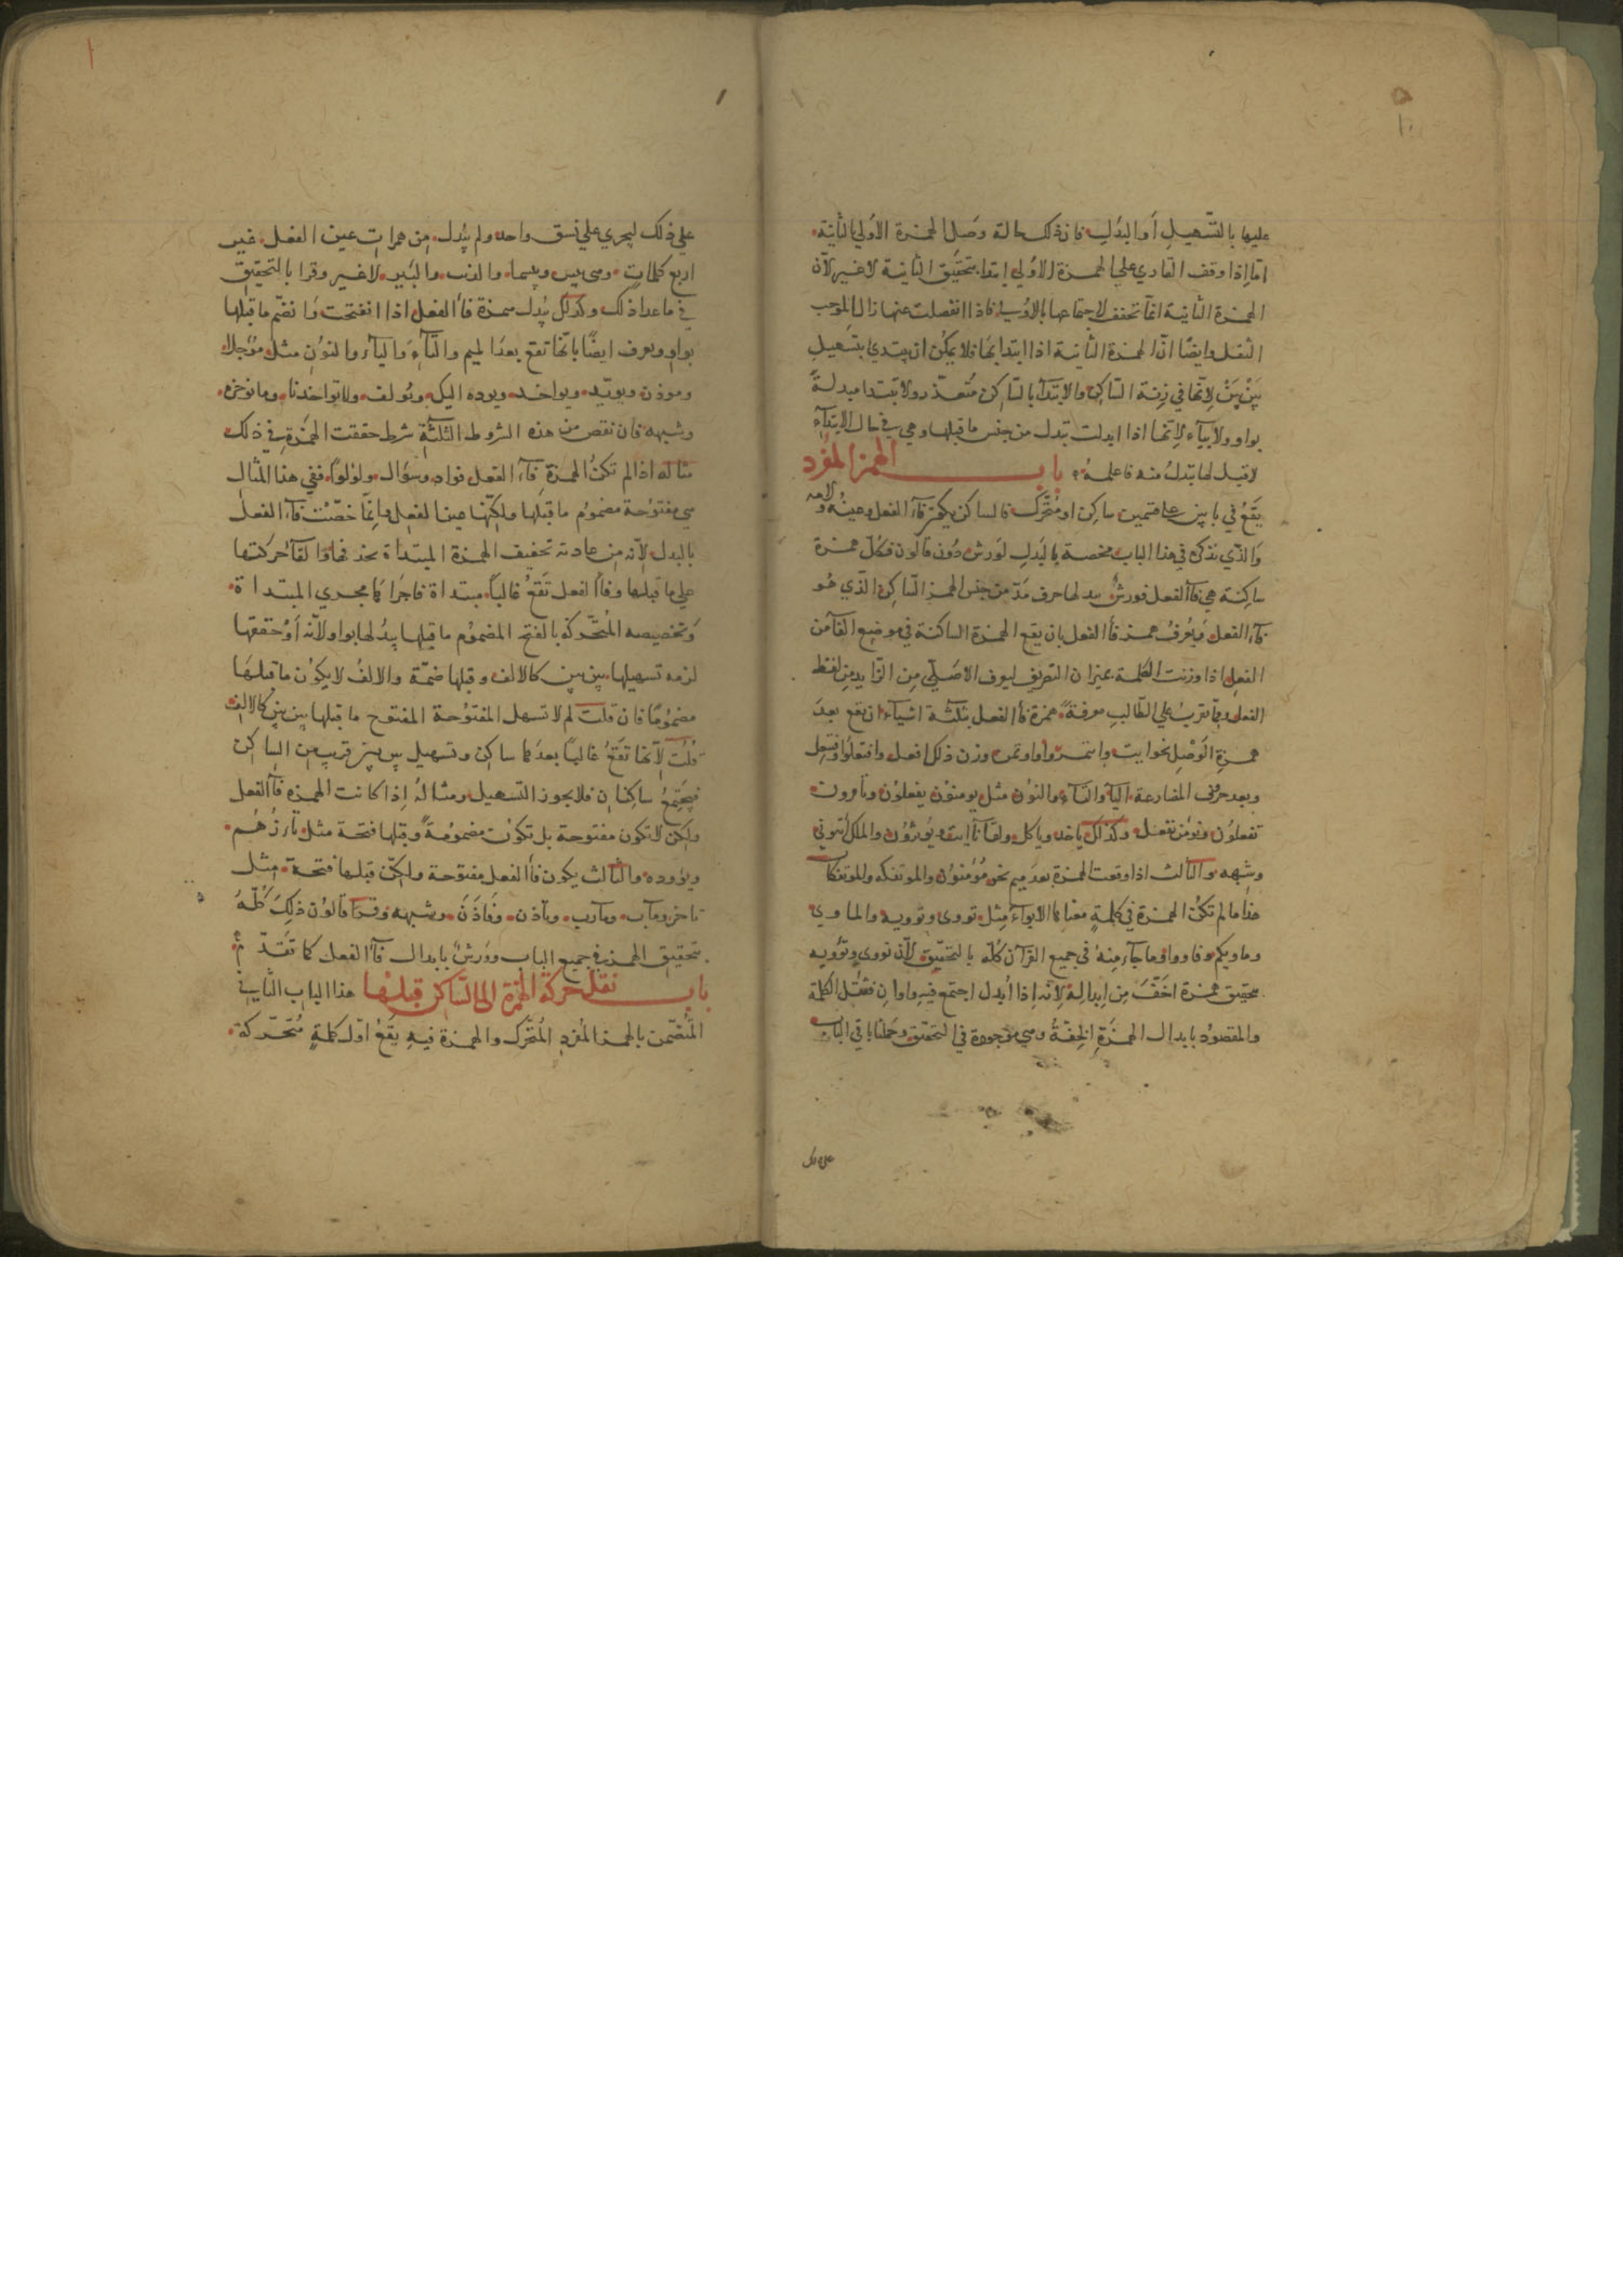 ١٠
عليها بالتسهيل أو البدل فان ذلك حالة وصل الهمزة الأولي بالثانية
امّا اذا وقف القاري علي الهمزة الأولي ابتدا بتحقيق الثانية لا غير لأن
الهمزة الثانية انما تخفف لاجتماعها بالأولي فاذا انفصلت عنها زال الموجب
الثقل وايضا انّ الهمزة الثانية اذا ابتدا بها فلا يمكن ان يبتدي بتسهيل
بين بين لانها في زنة الساكن والابتدآ بالساكن متعذر ولا تبتدا مبدلة
بواو ولا بيآء لانها اذا ابدلت تبدل من جنس ما قبلها وهي في حال الابتدآء
لا قبل لها يبدل منه فاعلمه باب الهمز المفرد
يقع في بابين علي قسمين ساكن او متحرك فالساكن يكون فآء الفعل وعينه ولامه
والذي يذكر في هذا الباب مخصصة بالبدل لورش دون قالون فكل همزة
ساكنة هي فآ الفعل فورش يبدلها حرف مدّ من جنس الهمز الساكن الذي هو
فآء الفعل ويعرف همزة فآ الفعل بان يقع الهمزة الساكنة في موضع الفآ من
الفعل اذا وزنت الكلمة بميزان التصريف ليعرف الاصلي من الزايد من لفظ
الفعل ومما يقرب علي الطالب معرفة همزة فآ الفعل بثلثة اشيآء ان تقع بعد
همزة الوصل نحو ايت واتمروا واوتمن وزن ذلك افعل وافتعلوا وافتعل
وبعد حرفي المضارعة اليآ والتآء والنون مثل يومنون يفعلون وتأمرون
تفعلون ونؤمن نفعل وكذلك ياخذ وياكل ولقآنا ايت ويؤثرون والملك ايتوني
وشبهه والثالث اذا وقعت الهمزة بعد ميم نحو مؤمنون والموتفكة والموتفكات
هذا ما لم تكن الهمزة في كلمة معناها الايوآء مثل تووي وتوويه والماوي
وماويكم وفاووا وما جآء منه في جميع القرآن كله بالتحقيق لأن تووي وتؤويه
تحقيق همزة اخفّ من ابدالها لانه اذا ابدل اجتمع فيه واوان فثقل الكلمة
والمقصود بابدال الهمزة الخفة وهي موجودة في التحقيق وحملنا باقي الباب
علي ذلك
علي ذلك ليجري علي نسق واحد ولم يبدل من همزات عين الفعل غير
اربع كلمات وهي بيس وبيسما والذيب والبير لا غير وقرا بالتحقيق
في ما عدا ذلك وكذلك يبدل همزة فآ الفعل اذا انفتحت وانضم ما قبلها
بواو ويعرف ايضا بانها تقع بعد الميم والتآء واليآء والنون مثل مؤجلا
وموذن ويويد ويواخذ ويوده اليك ويولف ولا تواخذنا وما نوخره
وشبهه فان نقص من هذه الشروط الثلثة شرط حققت الهمزة في ذلك
مثاله اذا لم تكن الهمزة فآء الفعل فواد وسؤال ولولوا ففي هذا المثال
هي مفتوحة مضموم ما قبلها ولكنها عين الفعل وانما خصت فآء الفعل
بالبدل لانه من عادته تخفيف الهمزة المبتداة بحذفها والقآ حركتها
علي ما قبلها وفآ الفعل تقع غالبا مبتداة فاجراها مجري المبتداة
وتخصيصه المتحركة بالفتح المضموم ما قبلها يبدلها بواو ولانه لو حققها
لزمه تسهيلها بين بين كالالف وقبلها ضمة والالف لا يكون ما قبلها
مضموما فان قلت لم لا تسهل المفتوحة المفتوح ما قبلها بين بين كالالف
قلت لانها تقع غالبا بعدها ساكن وتسهيل بين بين قريب من الساكن
فيجتمع ساكنان فلا يجوز التسهيل ومثاله اذا كانت الهمزة فآ الفعل
ولكن لا تكون مفتوحة بل تكون مضمومة وقبلها فتحة مثل تازهم
ويؤوده والثالث يكون فآ الفعل مفتوحة ولكن قبلها فتحة مثل
تاخر ومآب ومآرب ومآذن وفاذن وشبهه وقرا قالون ذلك كله
بتحقيق الهمز في جميع الباب وورش بابدال فآ الفعل كما تقدم
باب نقل حركة الهمزة الي الساكن قبلها هذا الباب الثاني
المتضمن بالهمز المفرد المتحرك والهمزة فيه يقع اوّل كلمة متحركة